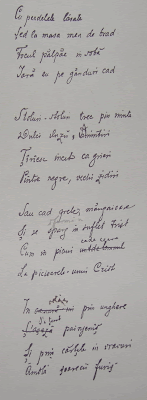 Cu perdelele lăsate
Șed la masa mea de brad
Focul pâlpâie în sobă
Iară eu pe gânduri cad

Stoluri-stoluri trec prin minte
Dulci iluzii, Amintiri
Țiriesc încet ca greeri
Printre negre, vechi zidiri

Sau cad grele, mângâioase
Și se sparg în suflet trist
Cum în picuri cade ceara
La picioarele-unui Crist

În odaie prin unghere
S-a țesut painjeniș
Și prin cărțile în vravuri
Îmblă șoarecii furiș